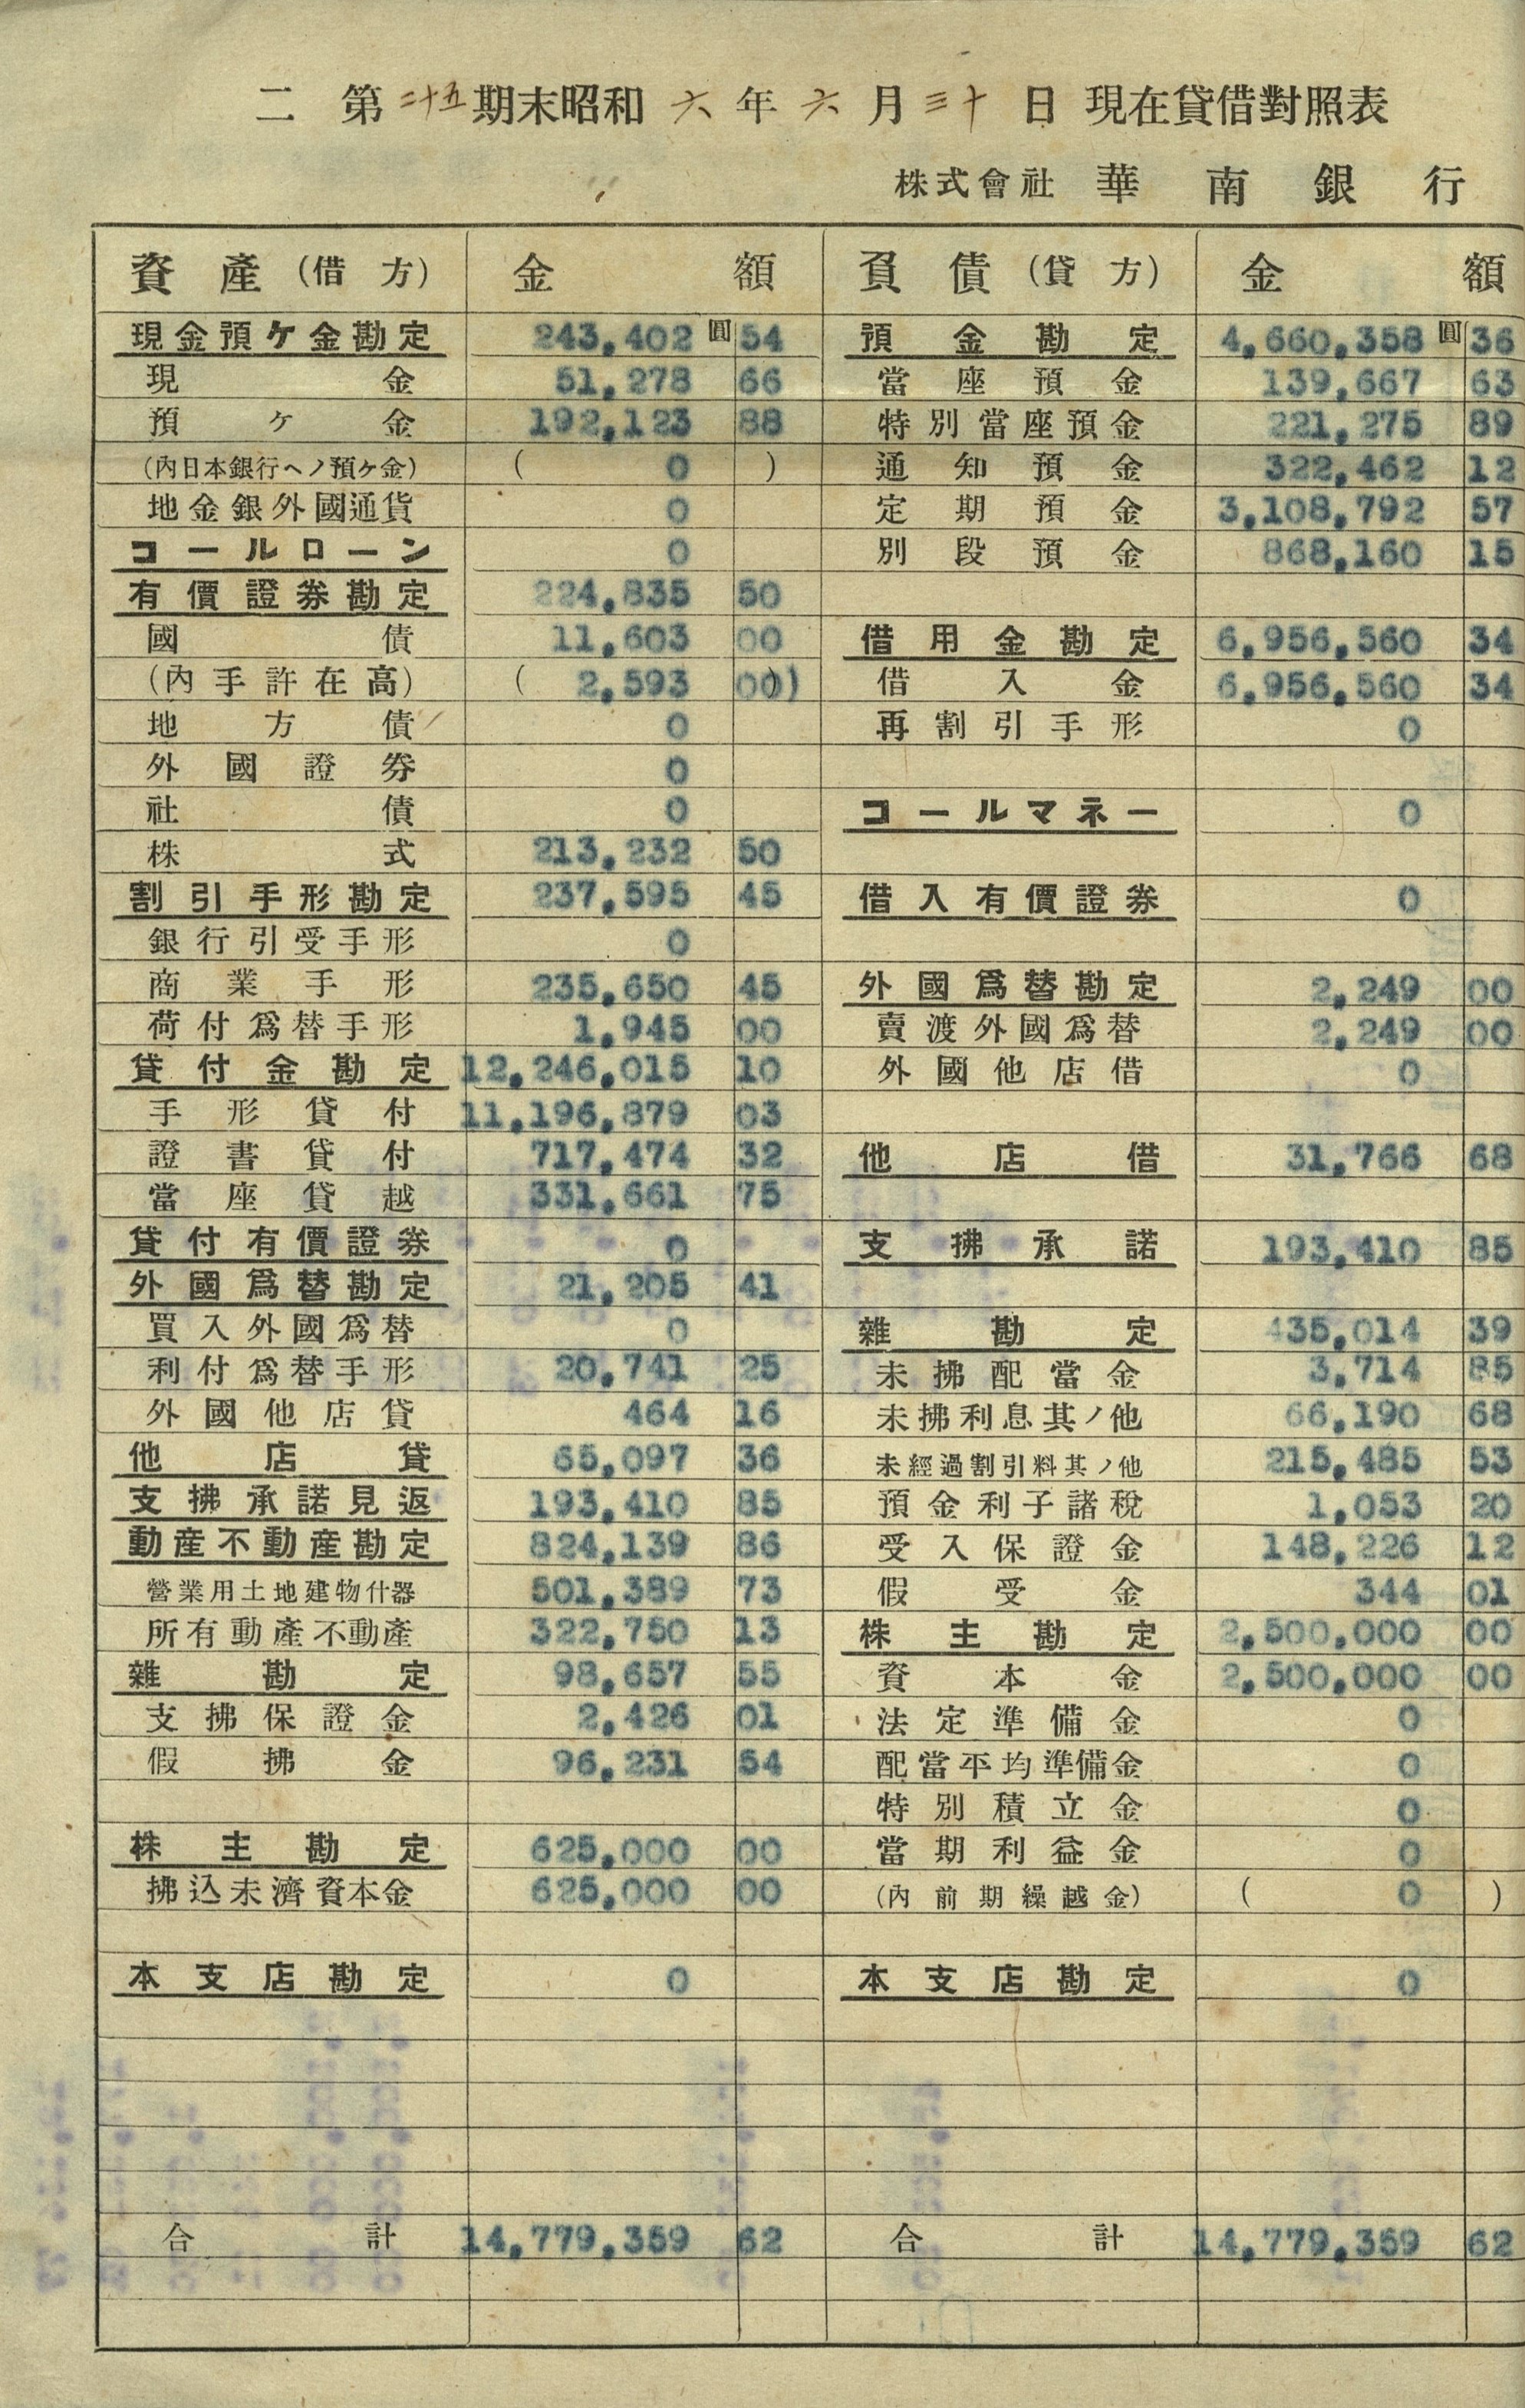 二 第二十五期末昭和六年六月三十日現在貸借對照表
株式會社 華南銀行
資產(借方) 金額 負債(貸方) 金額
現金預ケ金勘定 243,402圓54 預金勘定 4,660,358圓36
現金 51,278 66 當座預金 139,667 63
預ケ金 192,123 88 特別當座預金 221,275 89
(內日本銀行ヘノ預ケ金) ( 0 ) 通知預金 322,462 12
地金銀外國通貨 0 定期預金 3,108,792 57
コールローン 0 別段預金 868,160 15
有價證券勘定 224,835 50
國債 11,603 00 借用金勘定 6,956,560 34
(內手許在高) ( 2,593 00)) 借入金 6,956,560 34
地方債 0 再割引手形 0
外國證券 0
社債 0 コールマネー 0
株式 213,232 50
割引手形勘定 237,595 45 借入有價證券 0
銀行引受手形 0
商業手形 235,650 45 外國爲替勘定 2,249 00
荷付爲替手形 1,945 00 賣渡外國爲替 2,249 00
貸付金勘定 12,246,015 10 外國他店借 0
手形貸付 11,196,879 03
證書貸付 717,474 32 他店借 31,766 68
當座貸越 331,661 75
貸付有價證券 0 支拂承諾 193,410 85
外國爲替勘定 21,205 41
買入外國爲替 0 雜勘定 435,014 39
利付爲替手形 20,741 25 未拂配當金 3,714 85
外國他店貸 464 16 未拂利息其ノ他 66,190 68
他店貸 65,097 36 未經過割引料其ノ他 215,485 53
支拂承諾見返 193,410 85 預金利子諸稅 1,053 20
動産不動産勘定 824,139 86 受入保證金 148,226 12
營業用土地建物什器 501,389 73 假受金 344 01
所有動產不動產 322,750 13 株主勘定 2,500,000 00
雜勘定 98,657 55 資本金 2,500,000 00
支拂保證金 2,426 01 法定準備金 0
假拂金 96,231 54 配當平均準備金 0
特別積立金 0
株主勘定 625,000 00 當期利益金 0
拂込未濟資本金 625,000 00 (內前期繰越金) ( 0 )
本支店勘定 0 本支店勘定 0
合計 14,779,359 62 合計 14,779,359 62